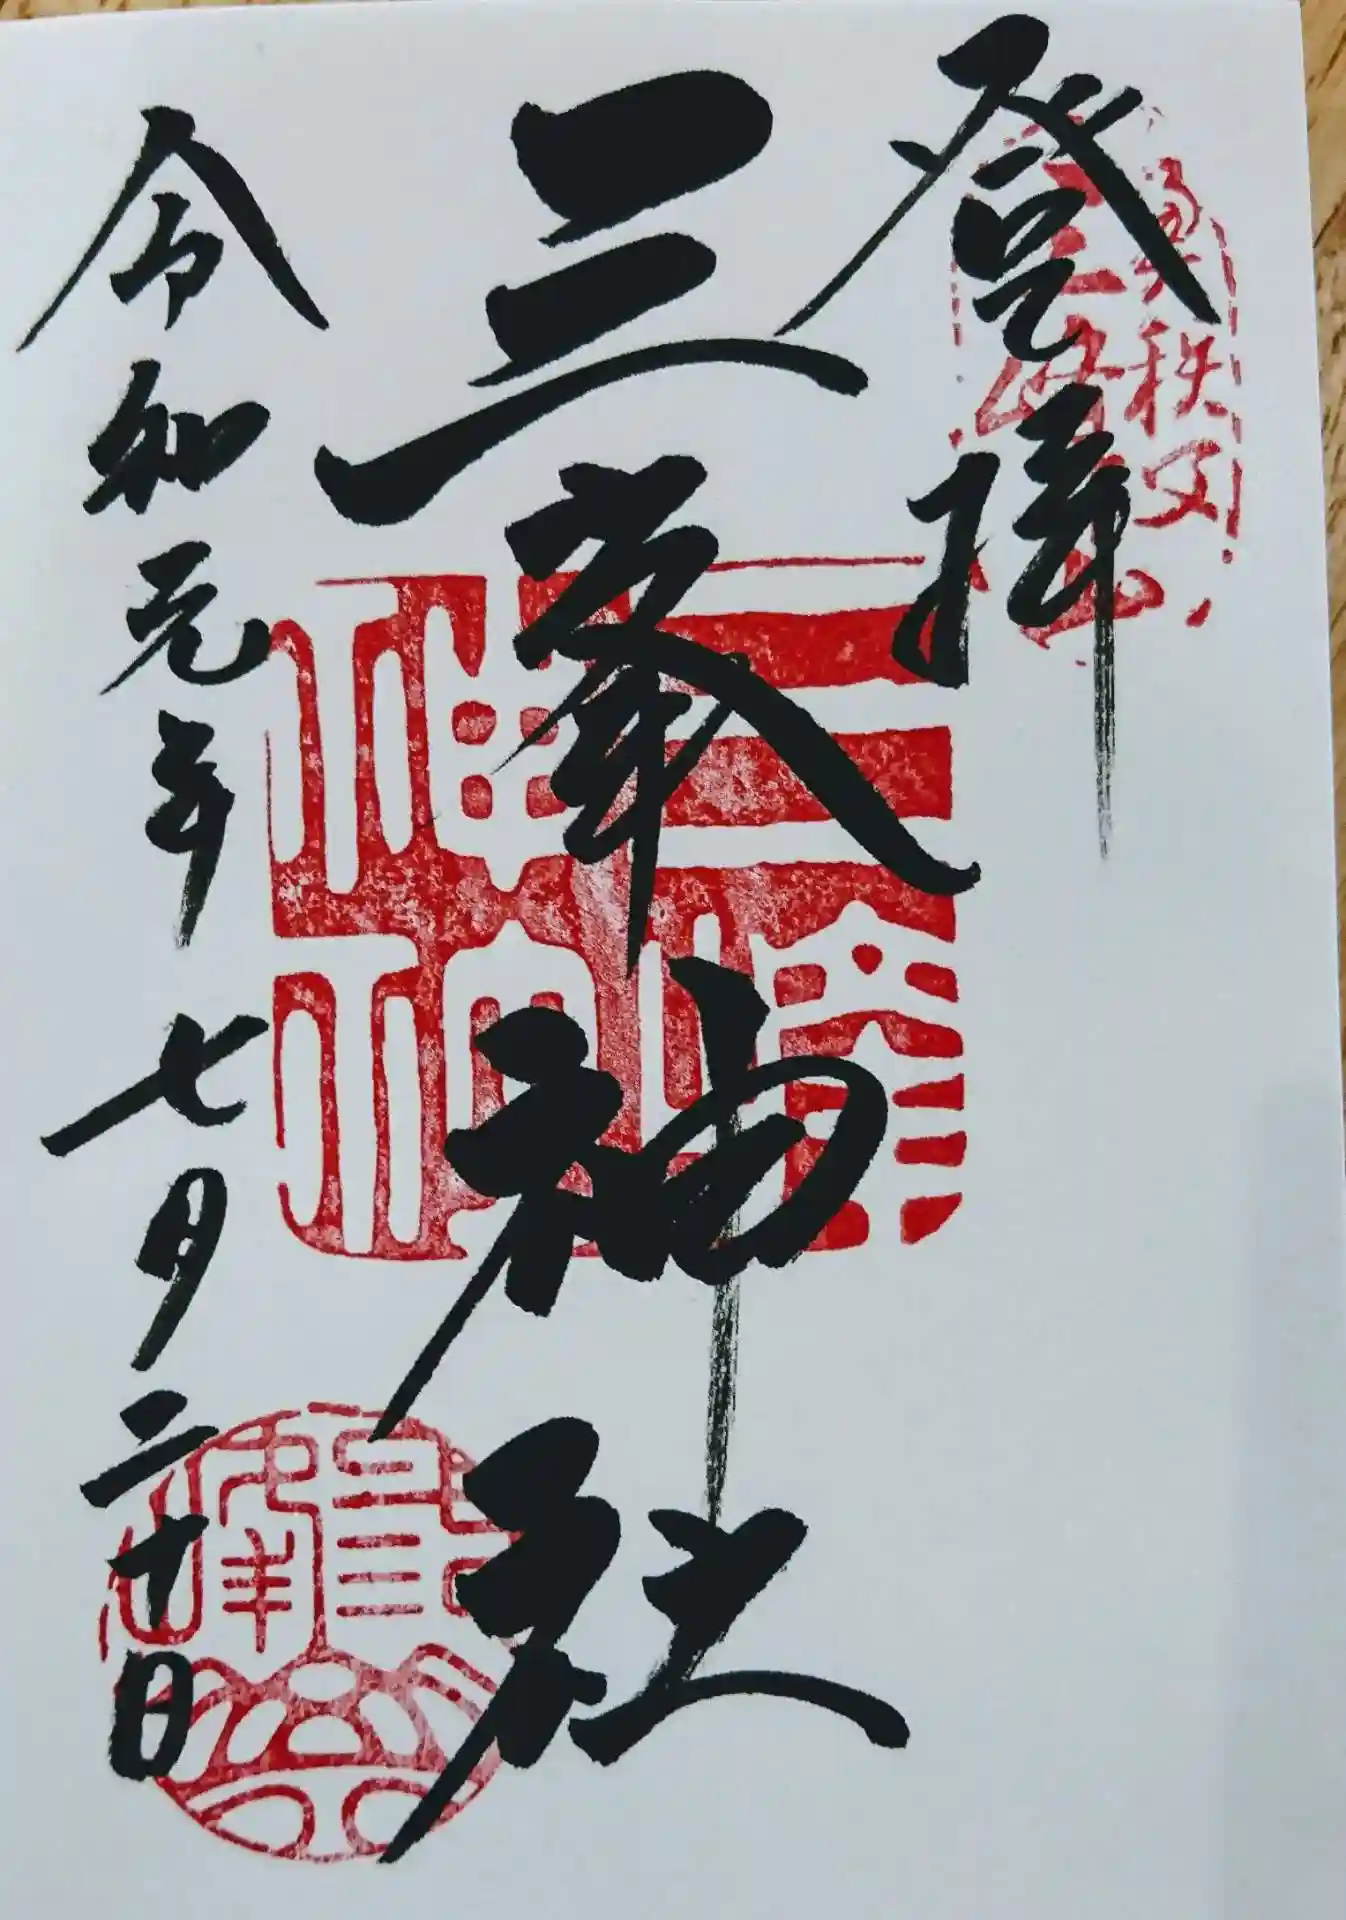 登拝
三峯神社
令和元年七月二十日
奥秩父
三峰山
三峰神社